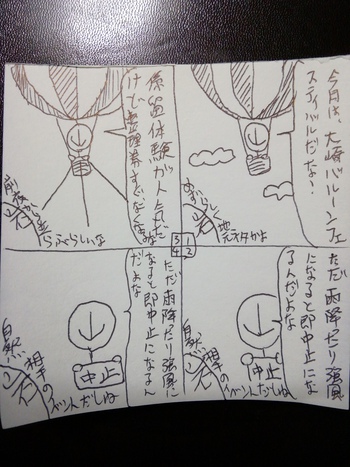 今月は、大崎バルーンフェ
スティバルだな!
めずらしく
地元ネタかよ
1
2
ただ雨降だり強風
になると即中止にな
るんだよな
中止
自然
相手の
イベントだしね
係留体験が人気だ
けで整理券すぐなくなる
らぶらしいな
3
4
ただ雨降だり強風に
なると即中止になるん
だよな
中止
自然
相手の
イベントだしね